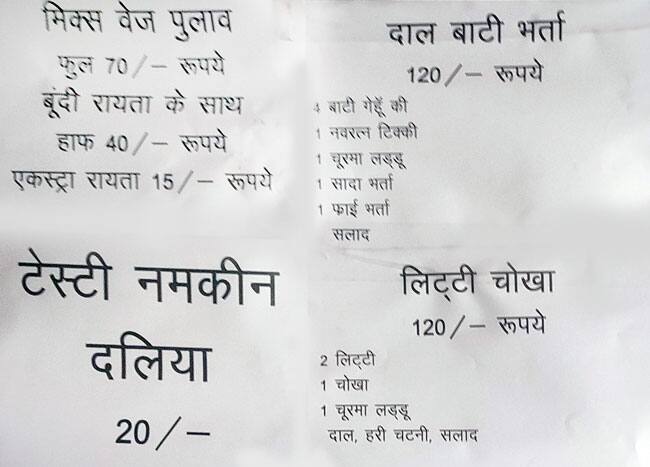 मिक्स वेज पुलाव
फुल 70/– रूपये
बूंदी रायता के साथ
हाफ 40/– रूपये
एकस्ट्रा रायता 15/– रूपये
दाल बाटी भर्ता
120/– रूपये
4 बाटी गेहूँ की
1 नवरत्न टिक्की
1 चूरमा लड्डू
1 सादा भर्ता
1 फाई भर्ता
सलाद
टेस्टी नमकीन
दलिया
20/–
लिट्टी चोखा
120/– रूपये
2 लिट्टी
1 चोखा
1 चूरमा लड्डू
दाल, हरी चटनी, सलाद